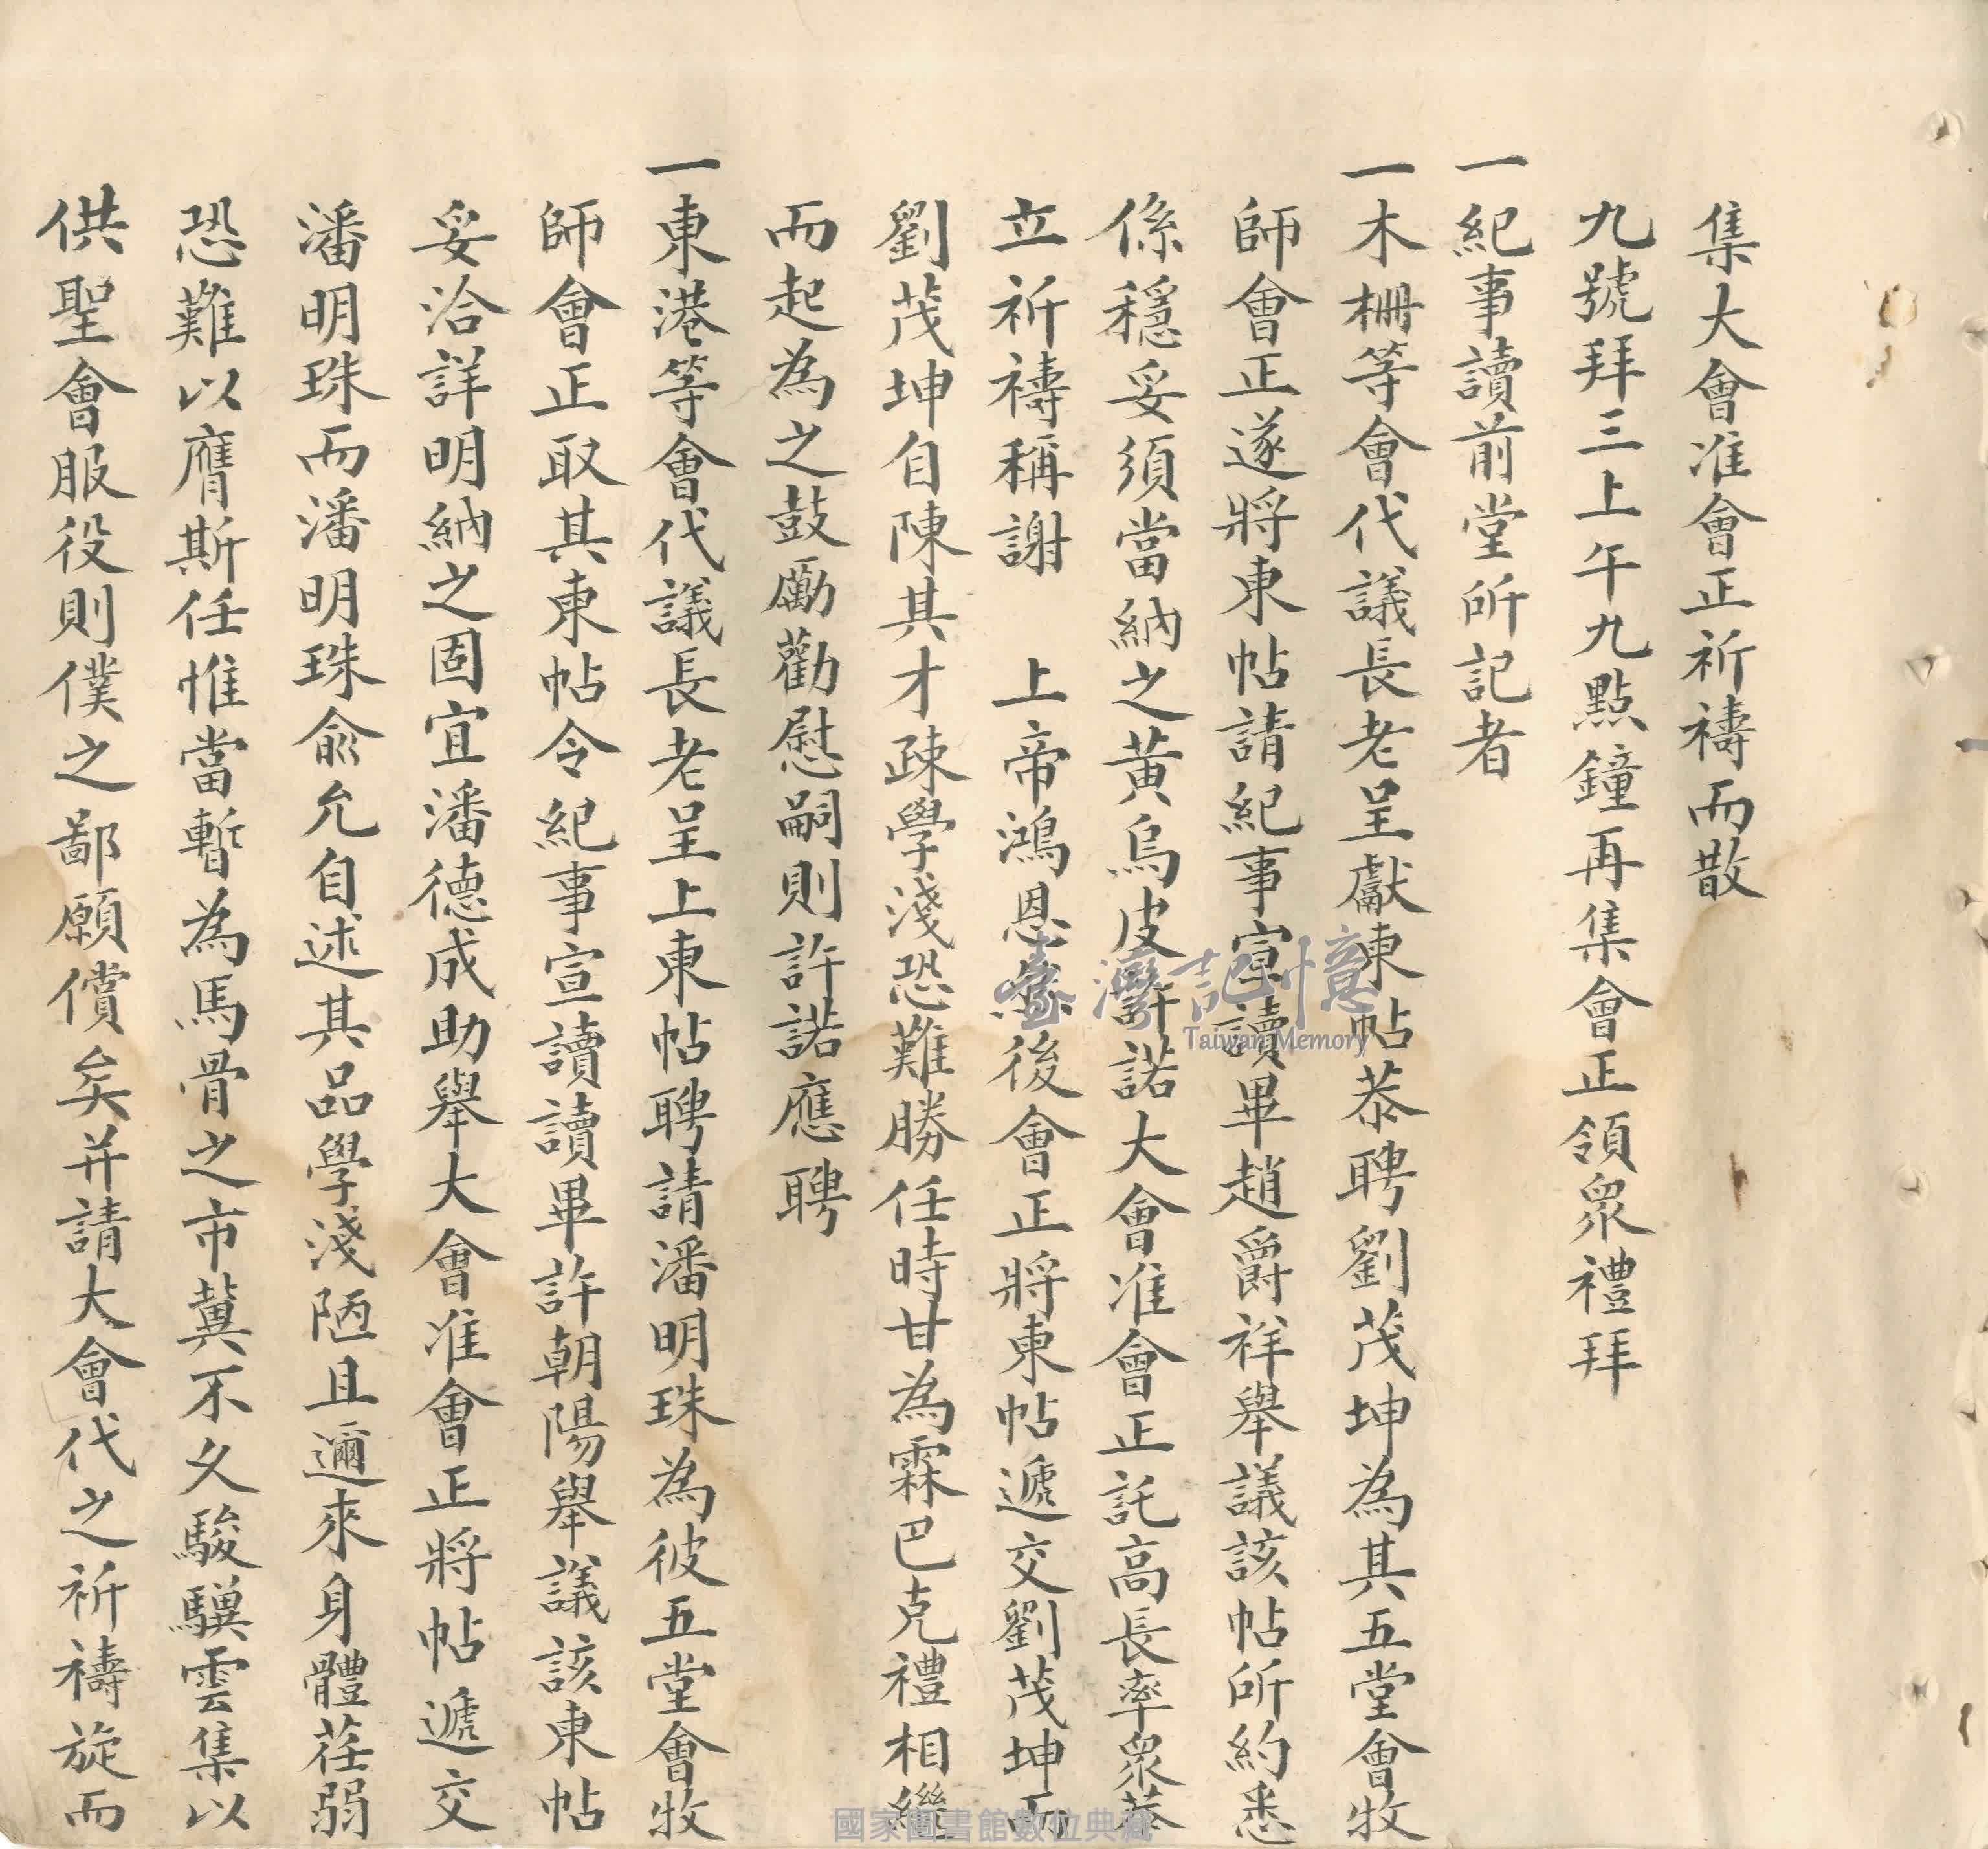 集大會准會正祈禱而散
九號拜三上午九點鐘再集會正領眾禮拜
一紀事讀前堂所記者
一木柵等會代議長老呈獻柬帖恭聘劉茂坤為其五堂會牧
師會正遂將柬帖請紀事宣讀畢趙爵祥舉議該帖所約悉
係穩妥須當納之黃烏皮許諾大會准會正託高長率眾恭
立祈禱稱謝 上帝鴻恩然後會正將柬帖遞交劉茂坤而
劉茂坤自陳其才疎學淺恐難勝任時甘為霖巴克禮相繼
而起為之鼓勵勸慰嗣則許諾應聘
一東港等會代議長老呈上柬帖聘請潘明珠為彼五堂會牧
師會正取其柬帖令紀事宣讀讀畢許朝陽舉議該柬帖
妥洽詳明納之固宜潘德成助舉大會准會正將帖遞交
潘明珠而潘明珠俞允自述其品學淺陋且邇來身體荏弱
恐難以膺斯任惟當暫為馬骨之市冀不久駿驥雲集以
供聖會服役則僕之鄙願償矣并請大會代之祈禱旋而
臺灣記憶
Taiwan Memory
國家圖書館數位典藏